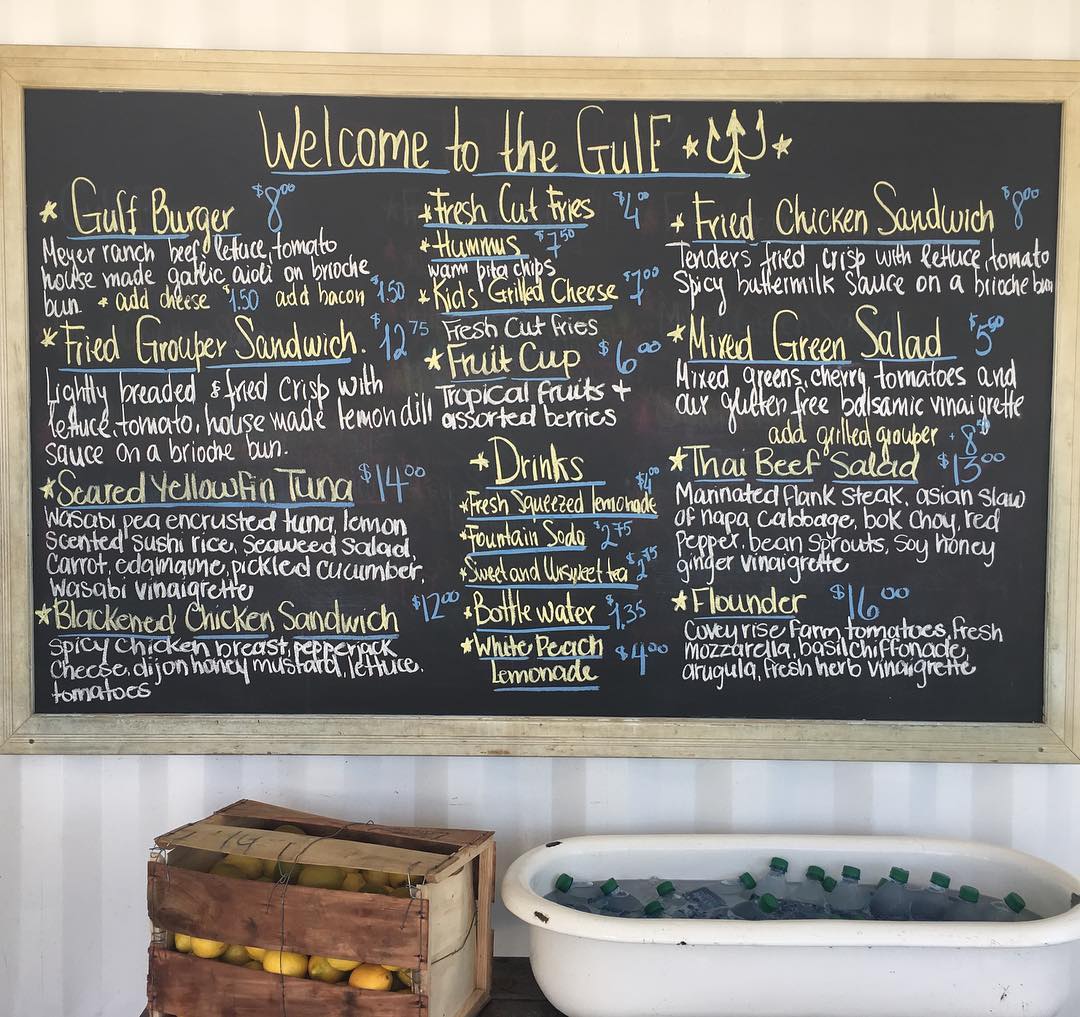 Welcome to the Gulf
* Gulf Burger $8.00
Meyer ranch beef, lettuce, tomato
house made garlic aioli on brioche
bun * add cheese $1.50 add bacon $1.50
* Fried Grouper Sandwich. $12.75
Lightly breaded & fried crisp with
lettuce, tomato, house made lemon dill
sauce on a brioche bun.
* Seared Yellowfin Tuna $14.00
Wasabi pea encrusted tuna, lemon
scented sushi rice, seaweed salad,
carrot, edamame, pickled cucumber,
wasabi vinaigrette
* Blackened Chicken Sandwich $12.00
Spicy chicken breast, pepperjack
cheese, dijon honey mustard, lettuce,
tomatoes
* Fresh Cut Fries $4.00
* Hummus $7.50
warm pita chips
* Kids Grilled Cheese $7.00
Fresh Cut fries
* Fruit Cup $6.00
Tropical fruits +
assorted berries
* Drinks
* Fresh Squeezed lemonade $4.00
* Fountain Soda $2.75
* Sweet and Unsweet tea $2.75
* Bottle water $1.35
* White Peach
Lemonade $4.00
* Fried Chicken Sandwich $8.00
Tenders fried crisp with lettuce, tomato
Spicy buttermilk sauce on a brioche bun
* Mixed Green Salad $5.50
Mixed greens, cherry tomatoes and
our gluten free balsamic vinaigrette
add grilled grouper + 8.50
* Thai Beef Salad $13.00
Marinated flank steak, asian slaw
of napa cabbage, bok choy, red
pepper, bean sprouts, soy honey
ginger vinaigrette
* Flounder $16.00
Coveyrise Farm tomatoes, fresh
mozzarella, basil chiffonade,
arugula, fresh herb vinaigrette